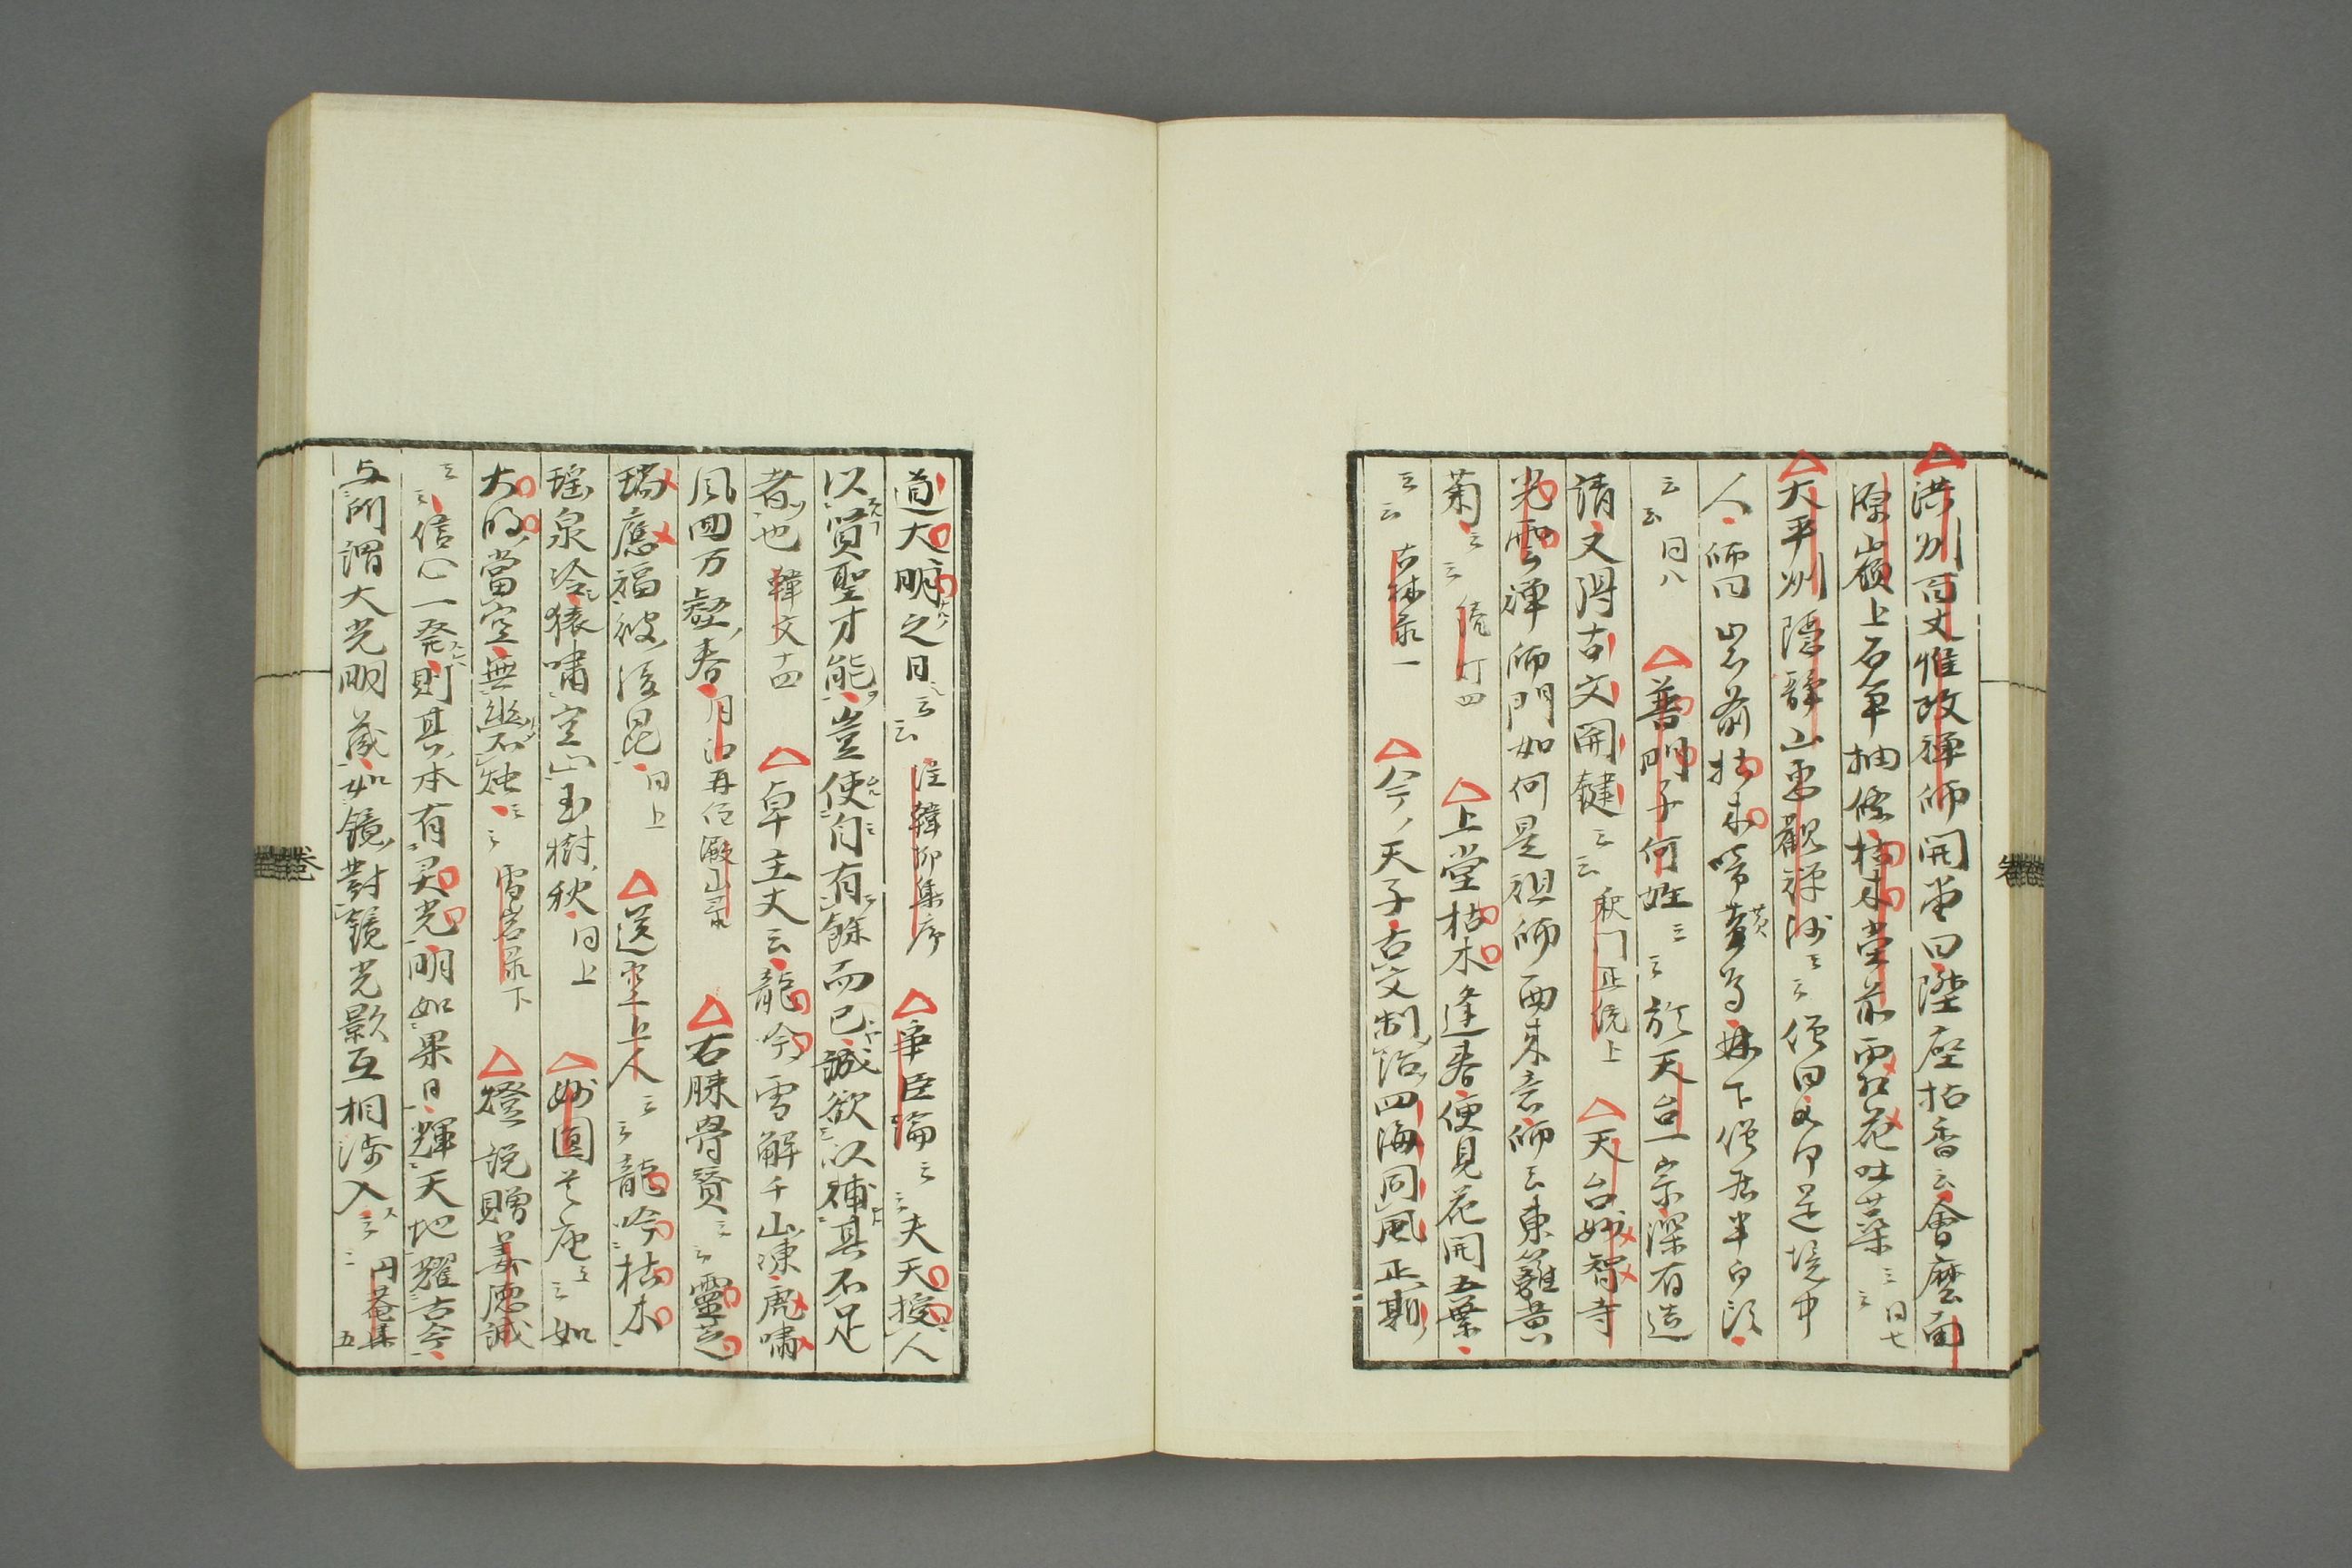 洪州百丈惟政禪師開堂曰陞座拈香云會麼南
源嶺上石笋抽條枯木堂前雪花吐蘂云云同七
大平州隱靜山惠觀禪師云云僧曰如何是境中
人師曰岩前枯木啼黄鳥林下僧居半白頭
云云同八 普明子何姓云云於天台一宗深有造
請文得古文関鍵云云釈門正統上 天台妙智寺
光雲禅師門如何是祖師西来意師云東籬黄
菊云云続灯四 上堂枯木逢春便見花開五葉
云云古林录一 今天子古文制治四海同風正期
道大明之日云云注韓柳集序 争臣論云云夫天授人
以賢聖才能豈使自有餘而已誠欲以補其不足
者也韓文十四 卓主丈云龍吟雪解千山凍虎嘯
風回万壑春月江再住澱山录 右脒骨賛云云靈芝
瑞應福被後昆同上 送空上人云云龍吟枯木
瑶泉冷猿嘯空山玉樹秋同上 妙圓庵云云如
大明當空無幽不燭云云雪岩录下 燈説贈姜德誠
云云信心一発則其本有灵光明如果日輝天地耀古今
与所謂大光明蔵如鏡對鏡光影互相渉入云云円菴集五